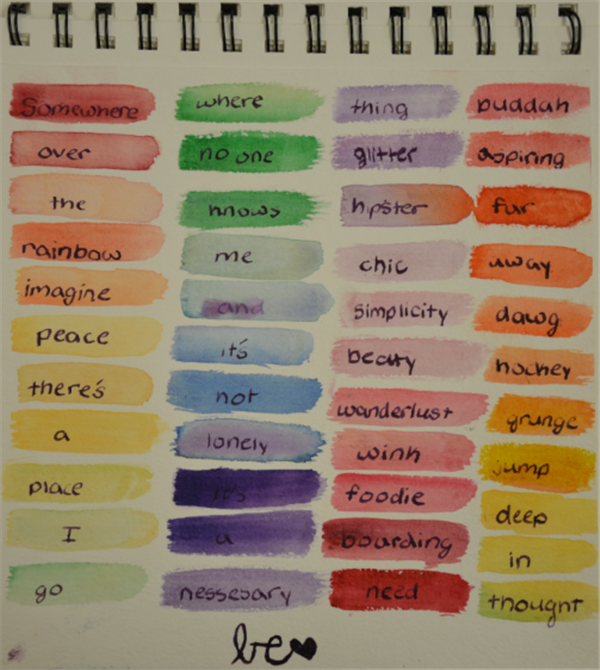 Somewhere
over
the
rainbow
imagine
peace
there's
a
place
I
go
where
no one
knows
me
and
it's
not
lonely
it's
a
nessesary
thing
glitter
hipster
chic
simplicity
beauty
wanderlust
wink
foodie
boarding
need
buddah
aspiring
fur
away
dawg
hockey
grunge
jump
deep
in
thought
be